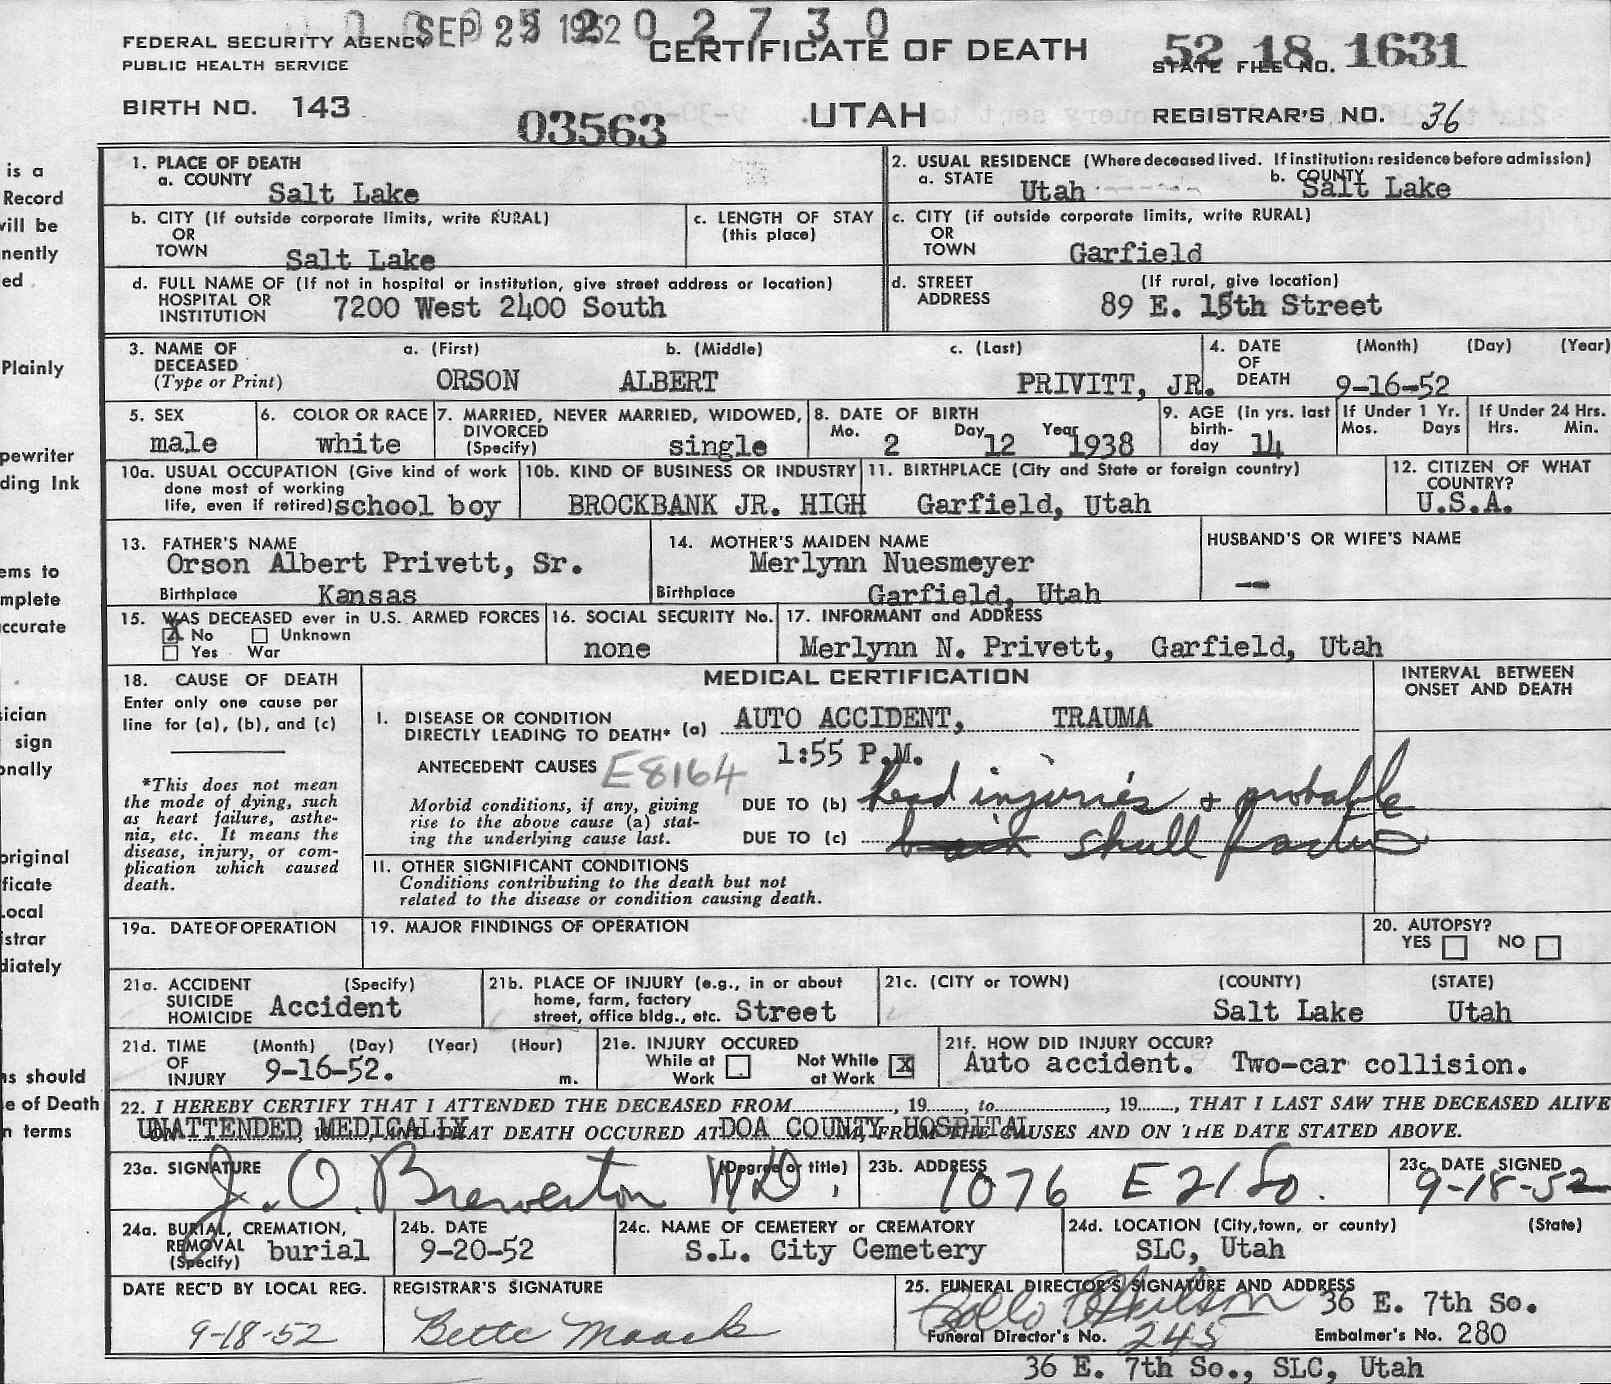 SEP 25 1952 0 2 7 3 0
FEDERAL SECURITY AGENCY
PUBLIC HEALTH SERVICE
CERTIFICATE OF DEATH
52 18 1631
STATE FILE NO.
BIRTH NO. 143
03563
UTAH
REGISTRAR'S NO. 36
is a
Record
will be
nently
ed
Plainly
pewriter
ding Ink
ems to
mplete
ccurate
sician
sign
onally
original
ficate
Local
istrar
diately
ns should
e of Death
n terms
1. PLACE OF DEATH
a. COUNTY Salt Lake
2. USUAL RESIDENCE (Where deceased lived. If institution: residence before admission)
a. STATE Utah b. COUNTY Salt Lake
b. CITY (If outside corporate limits, write RURAL)
OR
TOWN Salt Lake
c. LENGTH OF STAY
(this place)
c. CITY (if outside corporate limits, write RURAL)
OR
TOWN Garfield
d. FULL NAME OF (If not in hospital or institution, give street address or location)
HOSPITAL OR
INSTITUTION 7200 West 2400 South
d. STREET (If rural, give location)
ADDRESS 89 E. 15th Street
3. NAME OF DECEASED
(Type or Print)
a. (First) b. (Middle) c. (Last)
ORSON ALBERT PRIVITT, JR.
4. DATE OF DEATH (Month) (Day) (Year)
9-16-52
5. SEX
male
6. COLOR OR RACE
white
7. MARRIED, NEVER MARRIED, WIDOWED,
DIVORCED
(Specify) single
8. DATE OF BIRTH
Mo. 2 Day 12 Year 1938
9. AGE (in yrs. last
birth-
day 14
If Under 1 Yr.
Mos. Days
If Under 24 Hrs.
Hrs. Min.
10a. USUAL OCCUPATION (Give kind of work
done most of working
life, even if retired) school boy
10b. KIND OF BUSINESS OR INDUSTRY
BROCKBANK JR. HIGH
11. BIRTHPLACE (City and State or foreign country)
Garfield, Utah
12. CITIZEN OF WHAT
COUNTRY?
U.S.A.
13. FATHER'S NAME
Orson Albert Privett, Sr.
Birthplace Kansas
14. MOTHER'S MAIDEN NAME
Merlynn Nuesmeyer
Birthplace Garfield, Utah
HUSBAND'S OR WIFE'S NAME
—
15. WAS DECEASED ever in U.S. ARMED FORCES
X No Unknown
Yes War
16. SOCIAL SECURITY No.
none
17. INFORMANT and ADDRESS
Merlynn N. Privett, Garfield, Utah
18. CAUSE OF DEATH
Enter only one cause per
line for (a), (b), and (c)
*This does not mean
the mode of dying, such
as heart failure, asthe-
nia, etc. It means the
disease, injury, or com-
plication which caused
death.
MEDICAL CERTIFICATION
INTERVAL BETWEEN
ONSET AND DEATH
I. DISEASE OR CONDITION
DIRECTLY LEADING TO DEATH* (a) AUTO ACCIDENT, TRAUMA
1:55 P.M.
ANTECEDENT CAUSES E8164
Morbid conditions, if any, giving
rise to the above cause (a) stat-
ing the underlying cause last.
DUE TO (b) head injuries & probable
DUE TO (c) skull fracture
II. OTHER SIGNIFICANT CONDITIONS
Conditions contributing to the death but not
related to the disease or condition causing death.
19a. DATE OF OPERATION
19. MAJOR FINDINGS OF OPERATION
20. AUTOPSY?
YES NO
21a. ACCIDENT (Specify)
SUICIDE
HOMICIDE Accident
21b. PLACE OF INJURY (e.g., in or about
home, farm, factory
street, office bldg., etc. Street
21c. (CITY or TOWN) (COUNTY) (STATE)
Salt Lake Utah
21d. TIME (Month) (Day) (Year) (Hour)
OF
INJURY 9-16-52. m.
21e. INJURY OCCURED
While at Work Not While at Work X
21f. HOW DID INJURY OCCUR?
Auto accident. Two-car collision.
22. I HEREBY CERTIFY THAT I ATTENDED THE DECEASED FROM , 19 , to , 19 , THAT I LAST SAW THE DECEASED ALIVE
UNATTENDED MEDICALLY, AND THAT DEATH OCCURED AT DOA COUNTY HOSPITAL M, FROM THE CAUSES AND ON THE DATE STATED ABOVE.
23a. SIGNATURE (Degree or title)
J. O. Brewerton MD.
23b. ADDRESS
1076 E 21 So.
23c. DATE SIGNED
9-18-52
24a. BURIAL, CREMATION,
REMOVAL
(Specify) burial
24b. DATE
9-20-52
24c. NAME OF CEMETERY or CREMATORY
S.L. City Cemetery
24d. LOCATION (City, town, or county) (State)
SLC, Utah
DATE REC'D BY LOCAL REG.
9-18-52
REGISTRAR'S SIGNATURE
Bette Maack
25. FUNERAL DIRECTOR'S SIGNATURE AND ADDRESS
36 E. 7th So.
Funeral Director's No. 245 Embalmer's No. 280
36 E. 7th So., SLC, Utah